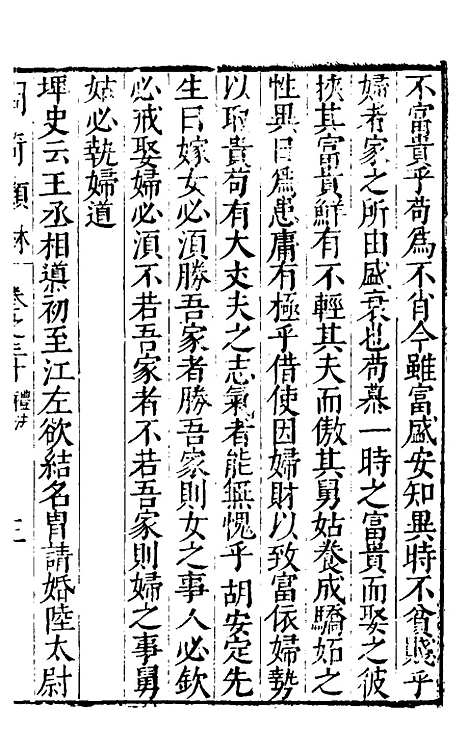 不富貴乎苟爲不肖今雖富盛安知異時不貧賤乎
婦者家之所由盛衰也苟慕一時之富貴而娶之彼
挾其富貴鮮有不輕其夫而傲其舅姑養成驕妬之
性異日爲患庸有極乎借使因婦財以致富依婦勢
以取貴苟有大丈夫之志氣者能無愧乎 胡安定先
生曰嫁女必湏勝吾家者勝吾家則女之事人必欽
必戒娶婦必湏不若吾家者不若吾家則婦之事舅
姑必執婦道
埤史云王丞相導初至江左欲結名胄請婚陸太尉
卷之三十
三